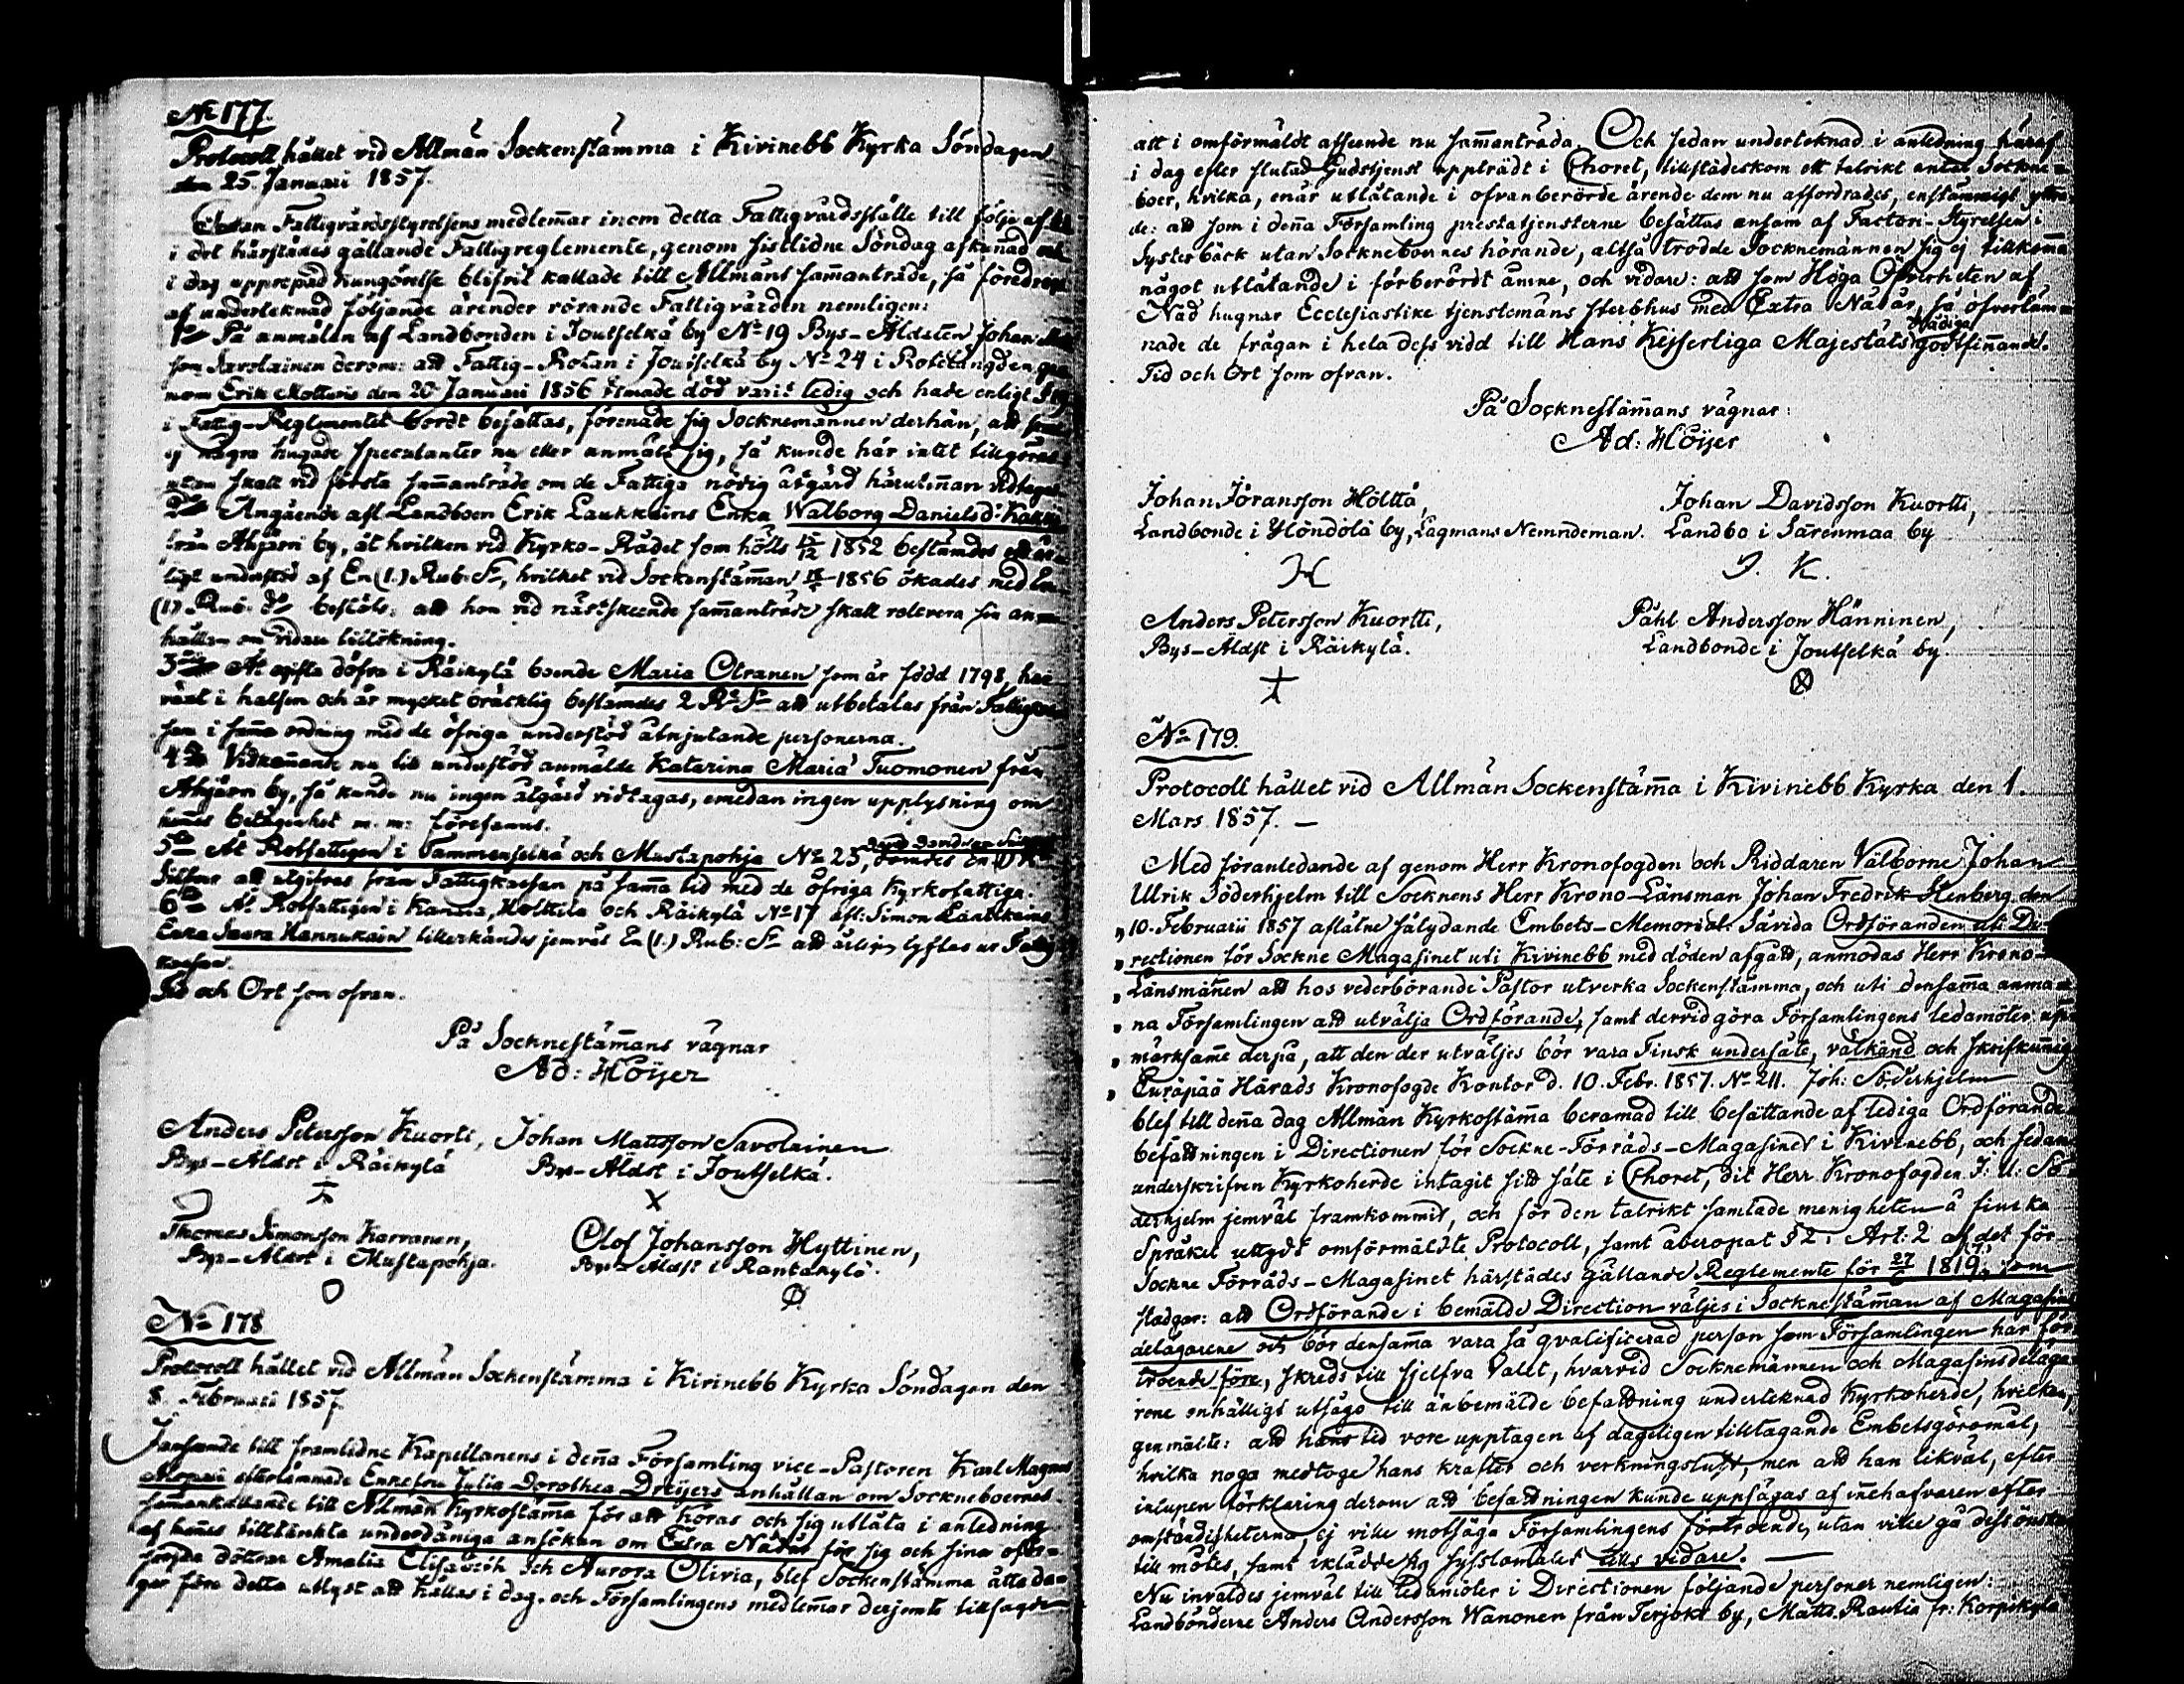 No 177.
Protocoll, hållet vid Allmän Sockenstämma i Kivinebb Kyrka Söndagen
den 25. Januari 1857.
Fattigvårdsstyrelsens medlemar inom detta Fattigvårdsställe till följe af
i det härstädes gällande Fattigreglemente, genom sistlidne Söndag afkunnad och
i dag upprepad kungörelse blifvit kallade till Allmänt samanträde, så föredrogs
af undertecknad följande ärender rörande Fattigvården nemligen:
1o På anmälan af Landbonden i Joutselkä by No 19 Bys-Åldsten Johan
son Savolainen derom: att Fattig-Rotan i Joutselkä by No 24 i Rotelängden ge-
nom Erik Motturis den 20 Januari 1856 timade död varit ledig och hade enligt §
i Fattig-Reglementet bordt besättas, förenade sig Socknemännen derhän, att som
ej några hugade speculanter nu eller anmält sig, så kunde här intet tillgöras
utan skall vid första samanträde om de Fattiga nödig åtgärd härutinnan vidtagas.
2o Angående afl. Landboen Erik Laukkains Enka Walborg Danielsd:
från Ahjärvi by, åt hvilken vid Kyrko-Rådet som hölls 15/12 1852 bestämdes ett år-
ligt understöd af En (1.) Rub. Sr, hvilket vid Sockenstämman 1856 ökades med En
(1) Rub. Sr beslöts: att hon vid nästskeende samanträde skall relevera sin an-
hållan om vidare tillökning.
3o Åt ogifta döfva i Räikylä boende Maria Otranen som är född 1798, har
växt i halsen och är mycket bräcklig bestämdes 2 R. Sr att utbetalas från Fattigkas-
san i sama ordning med de öfriga understöd åtnjutande personerna.
4o Vidkomande nu till understöd anmälde Katarina Maria Tuomonen från
Ahjärvi by, så kunde nu ingen åtgärd vidtagas, emedan ingen upplysning om
hennes belägenhet m. m: förefanns.
5o Åt Rotfattigen i Tammenselkä och Mustapohja No 23, dömdes En (1) R.
Silfver att utgifvas från Fattigkassan på sama tid med de öfriga Kyrkofattiga.
6o Åt Rotfattigen i Kanala, Holttila och Räikylä No 17 afl: Simon Laukkains
Enka Saara Hannukain tillerkändes jemväl En (1.) Rub: Sr att årligen lyftas ur Fattig-
kassan.
Tid och Ort som ofvan.
På Socknestämans vägnar
Ad: Höijer
Anders Petersson Kuortti, Johan Mattsson Savolainen
Bys-Äldst i Räikylä Bys-Äldst i Joutselkä.
X
Thomas Simonsson Karvanen, Olof Johansson Hyttinen,
Bys-Äldst i Mustapohja. Bys-Äldst i Rantakylä.
No 178
Protocoll hållet vid Allmän Sockenstämma i Kivinebb Kyrka Söndagen den
8. Februari 1857.
Jemte till framlidne Kapellanens i denna Församling vice-Pastoren Karl Magnus
efterlemnade Enkefru Julia Dorothea Dreijers anhållan om Sockneboernes
samankallande till Allmän Kyrkostämma för att höras och sig utlåta i anledning
af hennes tilltänkta underdåniga ansökan om Extra Nådår för sig och sina oför-
sörjda döttrar Amalia Elisabeth och Aurora Olivia, blef Sockenstämma åtta da-
gar före detta utlyst att hållas i dag, och Församlingens medlemar derjemte tillsagde
att i omförmäldt afseende nu samanträda. Och sedan undertecknad i anledning häraf
i dag efter slutad Gudstjenst uppträdt i Choret, tillstädeskom ett talrikt antal Sockne-
boer, hvilka, enär utlåtande i ofvanberörde ärende dem nu affordrades, enstämmigt yttra-
de: att som i denna Församling prestatjensterne besättas ensam af Factori-Styrelsen i
Systerbäck utan Sockneboernes hörande, altså trodde Socknemännen sig ej tillkomma
något utlåtande i förberördt ämne, och vidare: att som Höga Öfverheten af
Nåd hugnar Ecclesiastike tjenstemäns sterbhus med Extra Nådår, så öfverläm-
nade de frågan i hela dess vidd till Hans Kejserliga Majestäts Nådiga godtfinnande.
Tid och Ort som ofvan.
På Socknestämans vägnar:
Ad: Höijer
Johan Jöransson Hölttä, Johan Davidsson Kuortti,
Landbonde i Höndölä by, Lagmans Nemndeman. Landbo i Särenmaa by
H J. K.
Anders Petersson Kuortti, Påhl Andersson Hänninen,
Bys-Äldst i Räikylä. Landbonde i Joutselkä by.
No 179.
Protocoll hållet vid Allmän Sockenstäma i Kivinebb Kyrka den 1.
Mars 1857. —
Med föranledande af genom Herr Kronofogden och Riddaren Välborne Johan
Ulrik Söderhjelm till Socknens Herr Krono-Länsman Johan Fredrik Stenberg den
„10. Februarii 1857 aflåtne sålydande Embets-Memorial: Såvida Ordföranden uti Di-
„rectionen för Sockne Magasinet uti Kivinebb med döden afgått, anmodas Herr Krono-
„Länsmannen att hos vederbörande Pastor utverka Sockenstämma, och uti densamma anma-
„na Församlingen att utvälja Ordförande, samt dervid göra Församlingens ledamöter upp-
„märksamme derpå, att den der utväljes bör vara Finsk undersåte, välkänd och skrifkunnig
„Euräpää Härads Kronofogde Kontor d. 10. Febr. 1857. No 211. Joh: Söderhjelm
blef till denna dag Allmän Kyrkostäma beramad till besättande af lediga Ordförande
befattningen i Directionen för Sockne-Förråds-Magasinet i Kivinebb, och sedan
underskrifven Kyrkoherde intagit sitt säte i Choret, dit Herr Kronofogden J: U: Sö-
derhjelm jemväl framkommit, och för den talrikt samlade menigheten å finska
Språket uttydt omförmäldte Protocoll, samt åberopat § 2: Art: 2 af det för
Sockne Förråds-Magasinet härstädes gällande Reglemente för 27/6 1819, som
stadgar: att Ordförande i bemälde Direction väljes i Socknestämman af Magasins
delägarene och bör densamma vara så qvalificerad person som Församlingen har för-
troende före, skreds till sjelfva valet, hvarvid Socknemännen och Magasinsdeläga-
rene enhälligt utsågo till ånbemälde befattning undertecknad Kyrkoherde, hvilken,
genmälte: att hans tid vore upptagen af dageligen tilltagande Embetsgöromål,
hvilka noga medtoge hans krafter och verkningslust, men att han likväl, efter
inlupen förklaring derom att befattningen kunde uppsägas af inehafvaren efter
omständigheterna, ej ville motsäga Församlingens förtroende, utan ville gå dess önskan
till mötes, samt iklädde sig sysslomålet tills vidare. —
Nu invaldes jemväl till Ledamöter i Directionen följande personer nemligen:
Landbönderne Anders Andersson Wanonen från Terjoki by, Matts Rautia fr: Korpikylä